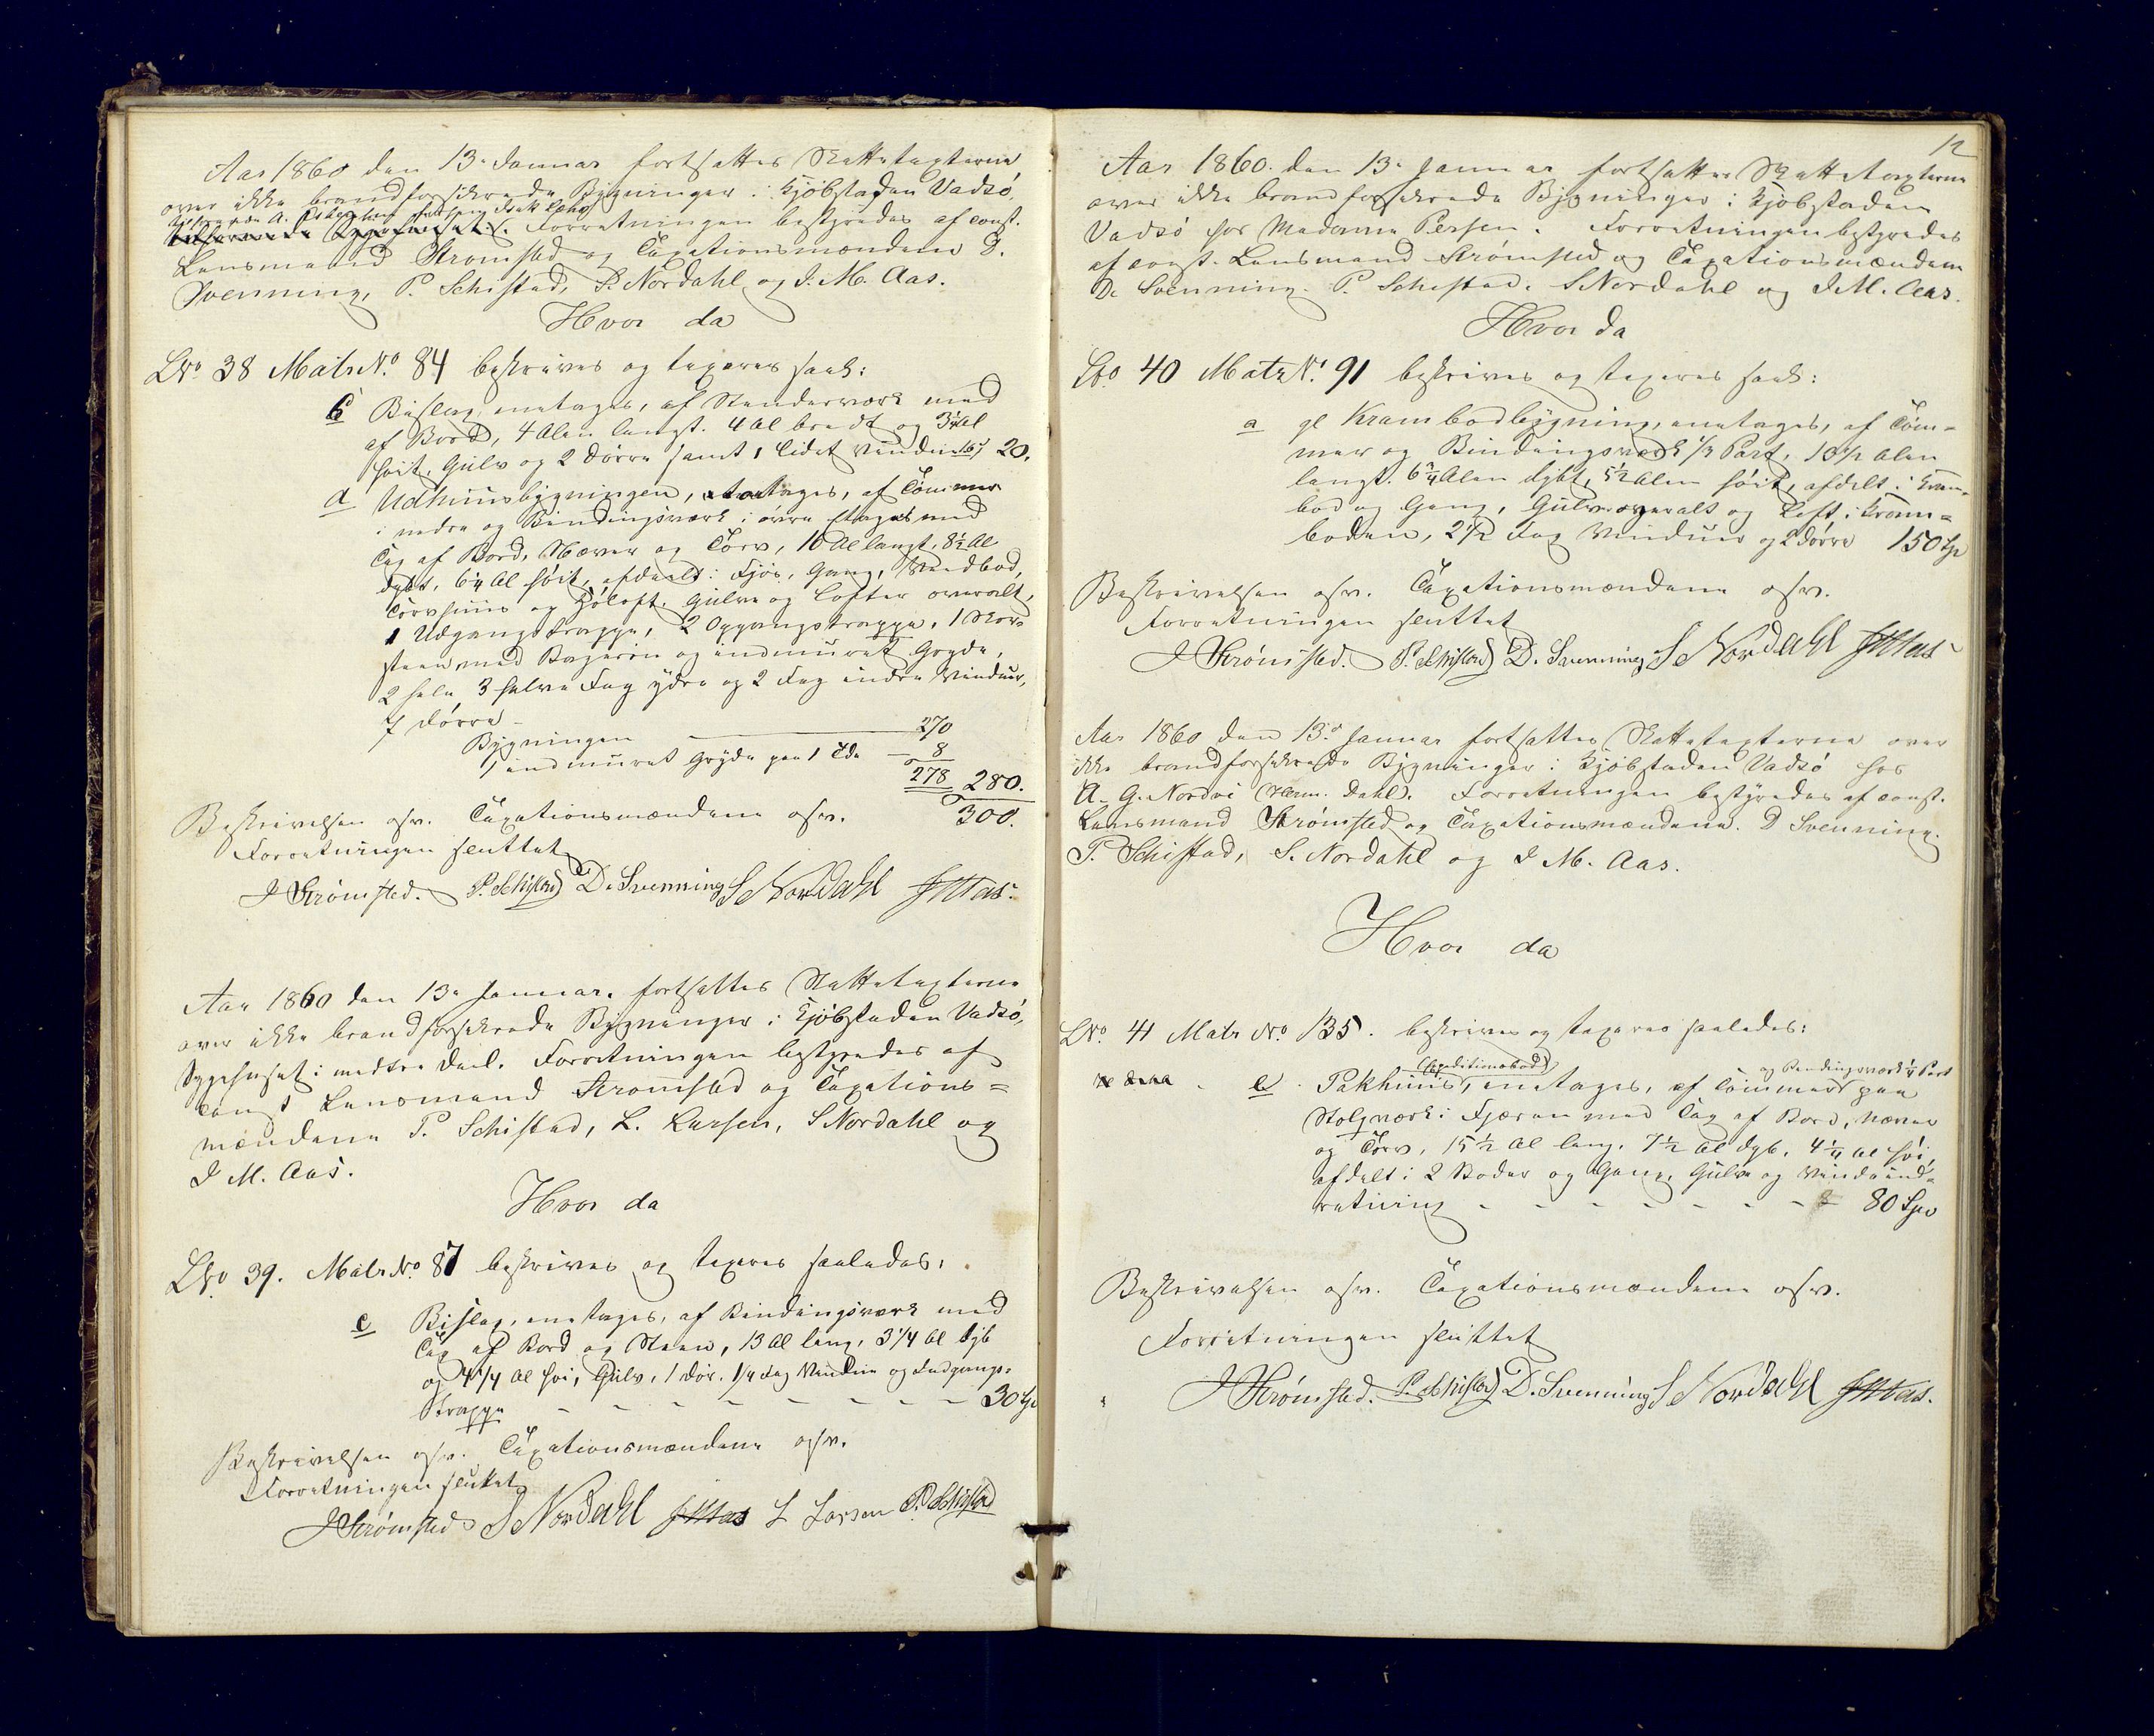 Aar 1860 den 13de Januar fortsattes Skattetaxterne
over ikke brandforsikrede Bygninger i Kjøbstaden Vadsø,
tilhørende A. Esbensen
Forretningen bestyredes af const.
Lensmand Strømsted og Taxationsmændene D.
Svenning, P. Schistad, S. Nordahl og I. M. Aas.
Hvor da
LNo 38 Matr No. 84 beskrives og taxeres saal:
b Bislag, enetages, af Stenderværk med
af Bord, 4 Alen langt. 4 Al bredt og 3¼ Al
høit, Gulv og 2 Dørre samt 1 lidet Vindue 20.
d Udhuusbygningen, af Tømmer
i nedre og Bindingsværk i øvre Etage med
Tag af Bord, Næver og Tørv, 16 Al langt, 8½ Al
dybt, 6¼ Al høit, afdeelt i Fjøs, Gang, Vedbod,
Tørvhuus og Høloft. Gulve og Lofter overalt,
1 Udgangstrappe, 2 Opgangstrappe, 1 Skor-
steen med Bagerovn og indmuret Gryde,
2 hele 3 halve Fag ydre og 2 Fag indre Vinduer,
7 Dørre
Bygningen 270
1 indmuret Gryde paa 1 Tde 8
278 280.
300.
Beskrivelsen osv. Taxationsmændene osv.
Forretningen sluttet
J Strømsted. P. Schistad D. Svenning S Nordahl JMAas.
Aar 1860 den 13de Januar. fortsattes Skattetaxterne
over ikke brandforsikrede Bygninger i Kjøbstaden Vadsø,
Sygehuset i nedre Deel. Forretningen bestyredes af
const Lensmand Strømsted og Taxations=
mændene P. Schistad, L. Larsen, S Nordahl og
I M. Aas.
Hvor da
LNo 39. Matr No. 87 beskrives og taxeres saaledes:
e Bislag, enetages, af Bindingsværk med
Tag af Bord og Steen, 13 Al lang, 3¼ Al dyb
og 4¼ Al høi, Gulv, 1 Dør. 1¼ Fag Vindue og Indgangs-
Trappe - - - - - - - - 30 Spd
Beskrivelsen osv. Taxationsmændene osv.
Forretningen sluttet
J Strømsted S Nordahl JMAas L Larsen P. Schistad
12
Aar 1860. den 13de Januar fortsattes Skattetaxterne
over ikke brandforsikrede Bygninger i Kjøbstaden
Vadsø hos Madame Persen. Forretningen bestyredes
af const. Lensmand Strømsted og Taxationsmændene
D. Svenning. P. Schistad. S Nordahl og I M. Aas.
Hvor da
LNo 40 Matr No. 91 beskrives og taxeres saal:
a gl Krambodbygning, enetages, af Tøm-
mer og Bindingsværk 1/3 Part, 13½ Alen
langt. 6¾ Alen dybt, 5½ Alen høit, afdelt i Kram-
bod og Gang, Gulv overalt og Loft i Kram=
boden, 2½ Fag Vinduer og 2 Dørre 150 Spd
Beskrivelsen osv. Taxationsmændene osv.
Forretningen sluttet
J Strømsted. P. Schistad D. Svenning S Nordahl JMAas
Aar 1860 den 13de Januar fortsattes Skattetaxterne over
ikke brandforsikrede Bygninger i Kjøbstaden Vadsø hos
A. G. Nordvi (Herm. Dahl). Forretningen bestyredes af const.
Lensmand Strømsted og Taxationsmændene. D Svenning.
P. Schistad, S. Nordahl og I M. Aas.
Hvor da
LNo. 41 Matr No. 135. beskrives og taxeres saaledes:
(Expeditionsbod) og Bindingsværk ¼ Part
e Pakhuus, enetages, af Tømmer paa
Stolpværk i Fjæren med Tag af Bord, Næver
og Tørv, 15½ Al lang, 7½ Al dyb. 4¼ Al høi,
afdelt i 2 Boder og Gang, Gulv og Vindeind-
retning - - - - - - - 80 Spd
Beskrivelsen osv. Taxationsmændene osv.
Forretningen sluttet
J Strømsted. P. Schistad D. Svenning S Nordahl JMAas.